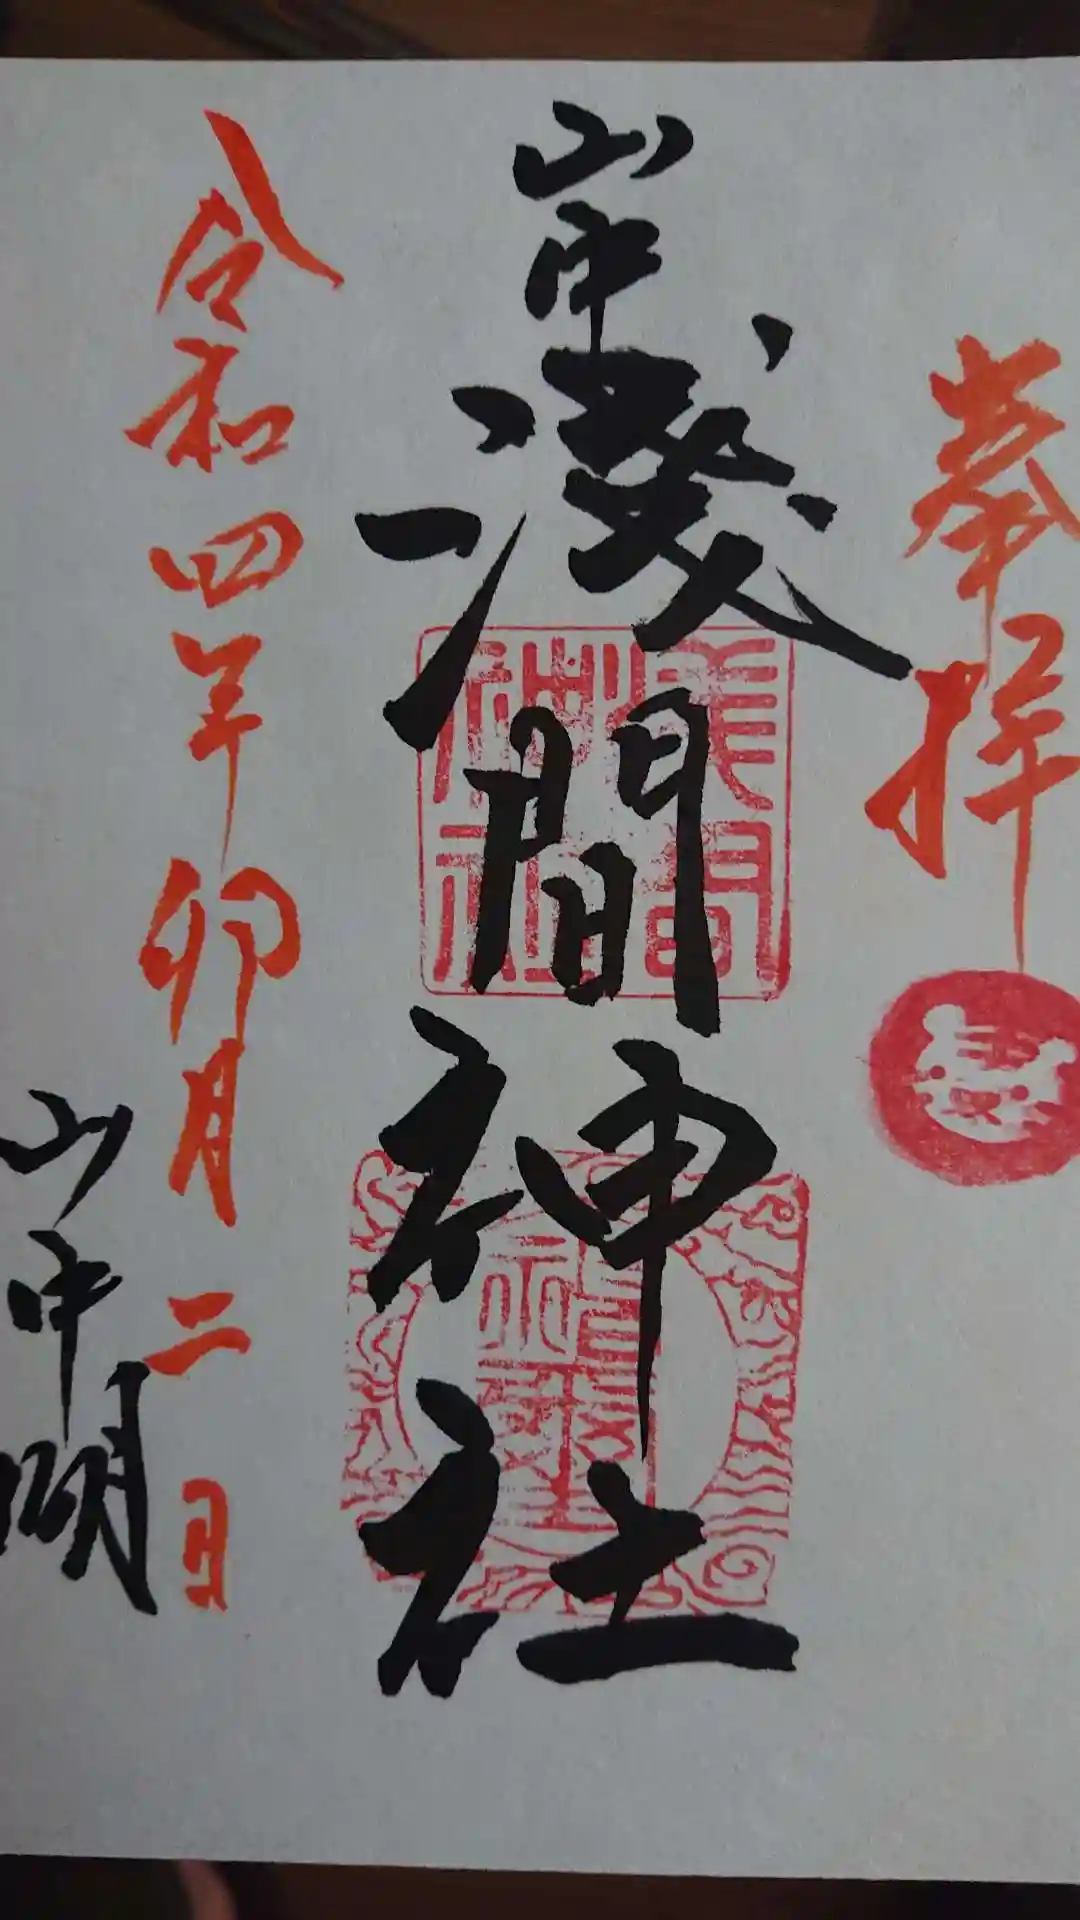 奉拝
山中
淺間神社
淺間神社
令和四年卯月二日
山中湖